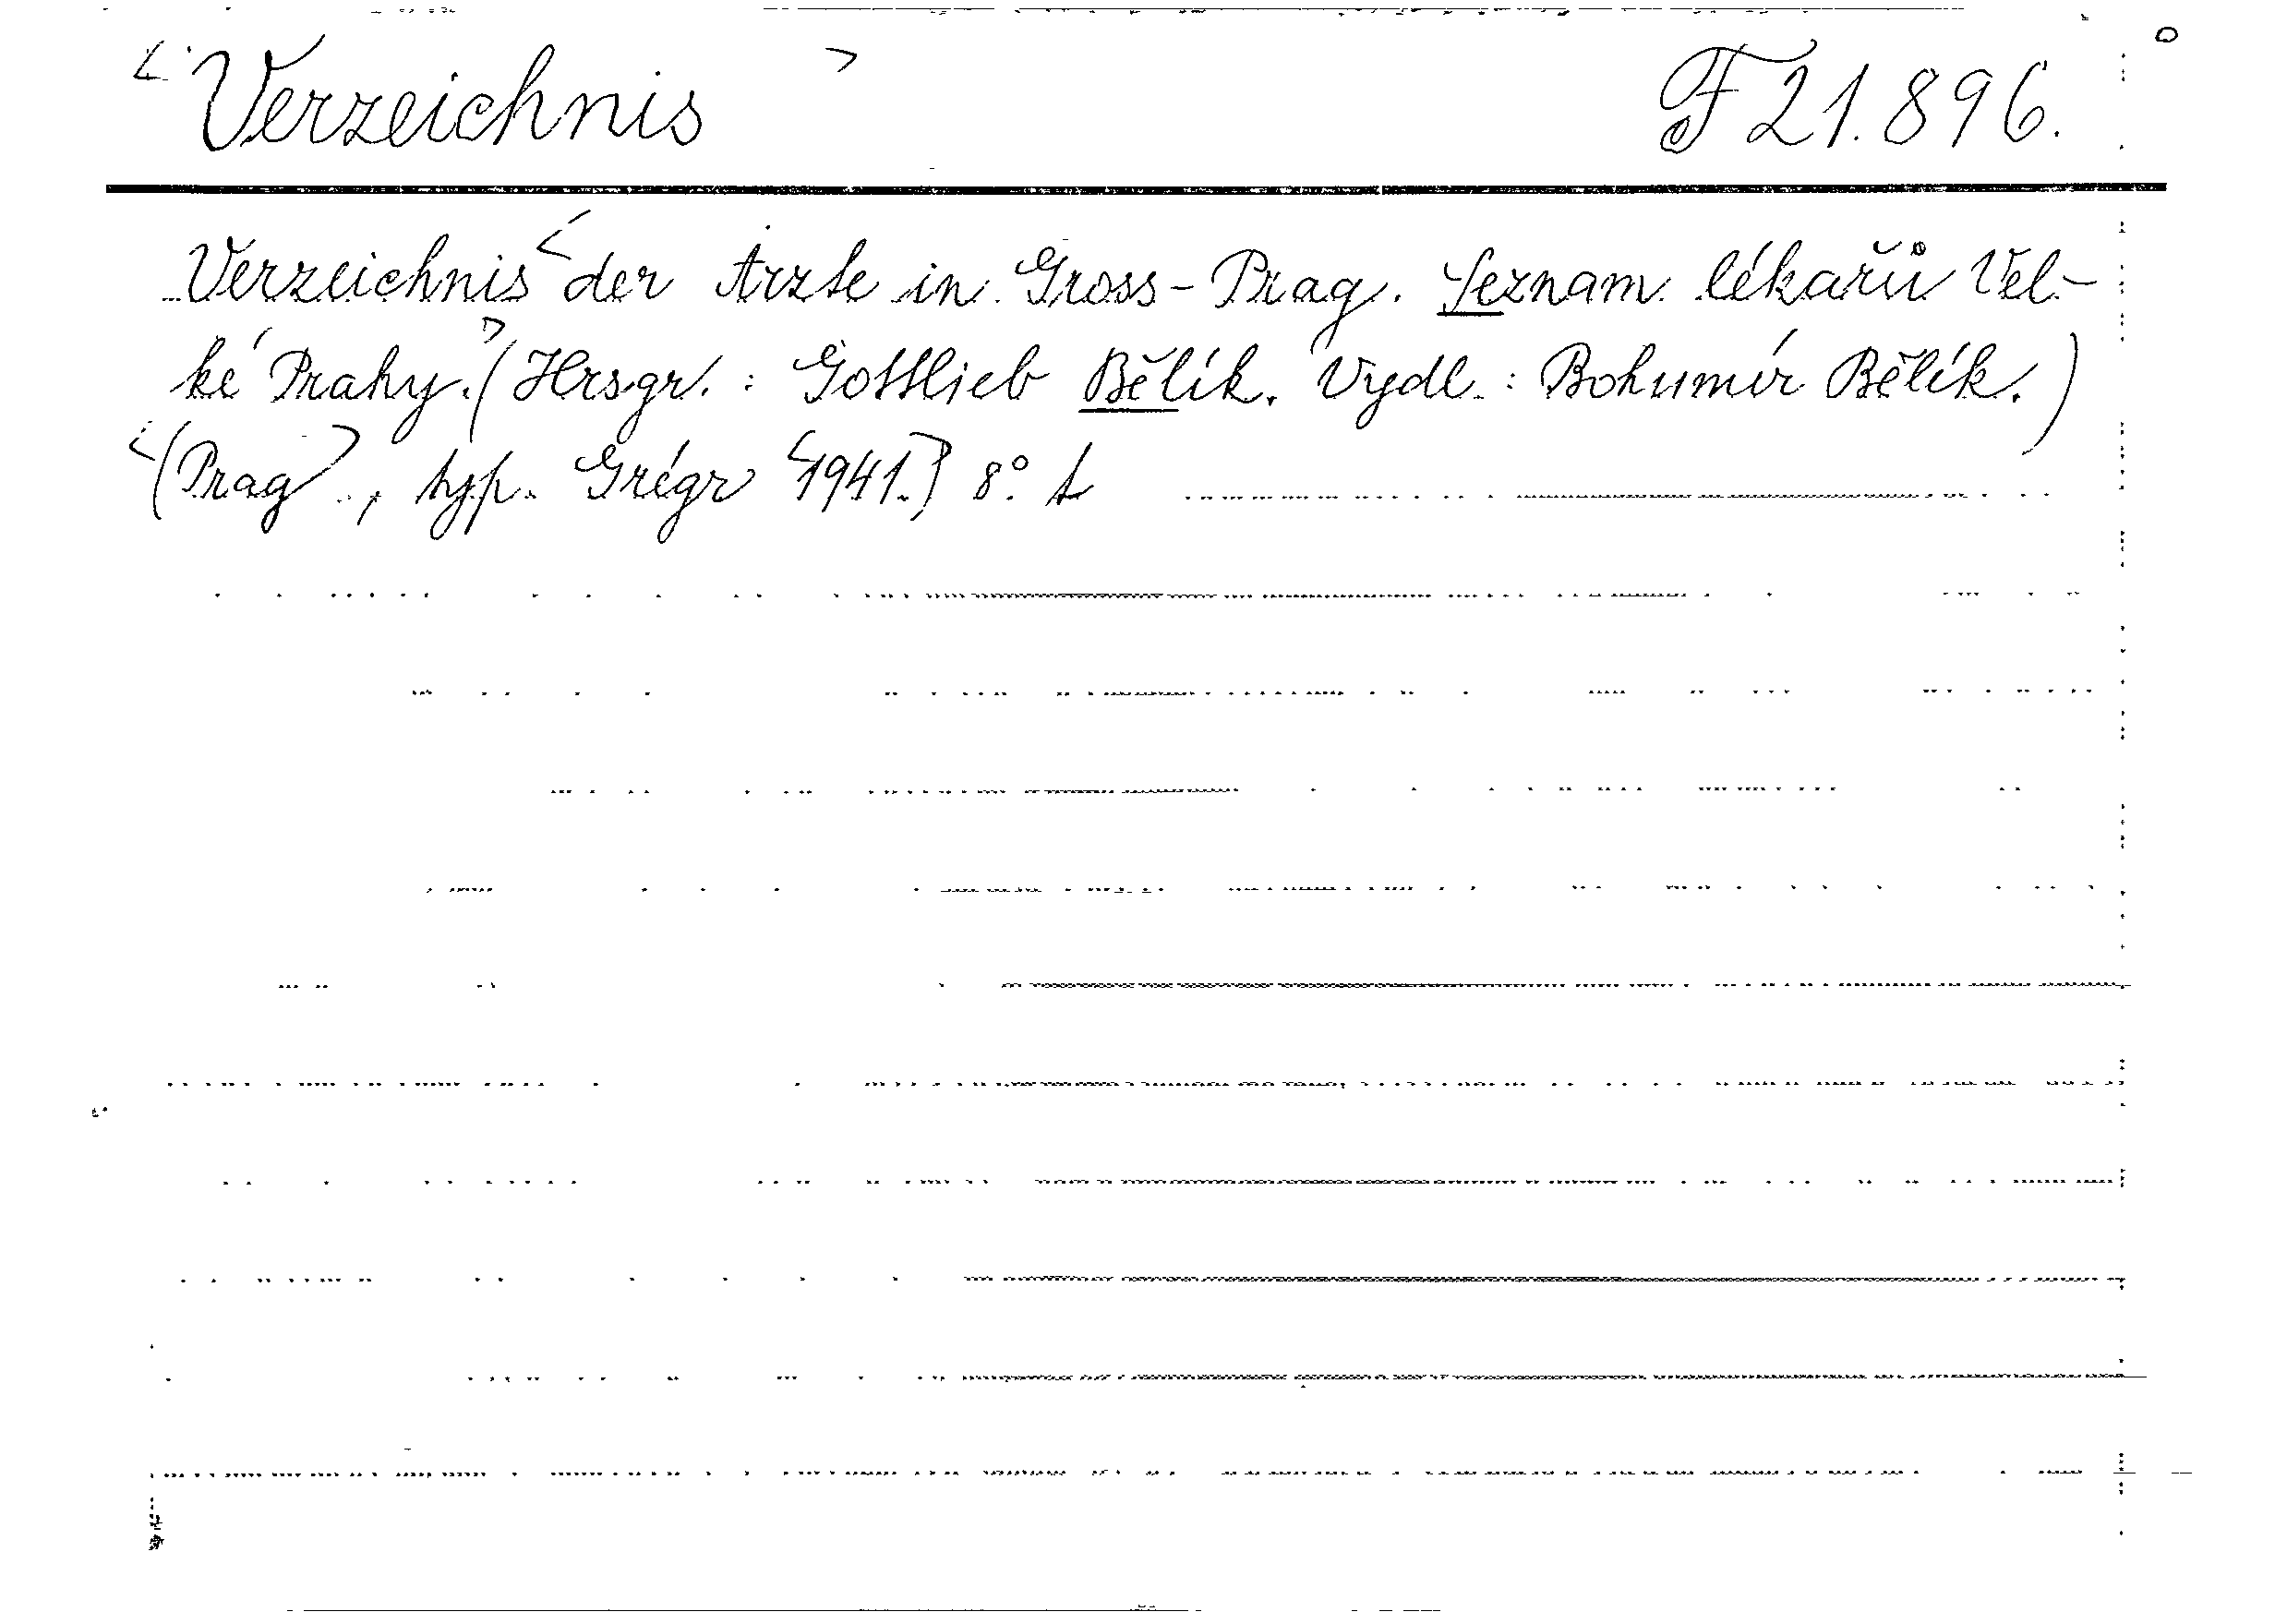 <Verzeichnis> F 21.896.
Verzeichnis <der Ärzte in Gross-Prag. Seznam lékařů Vel-
ké Prahy.> (Hrsgr.: Gottlieb Bělík. Vydl.: Bohumír Bělík.)
<(Prag>., typ. Grégr <1941.>) 8°.